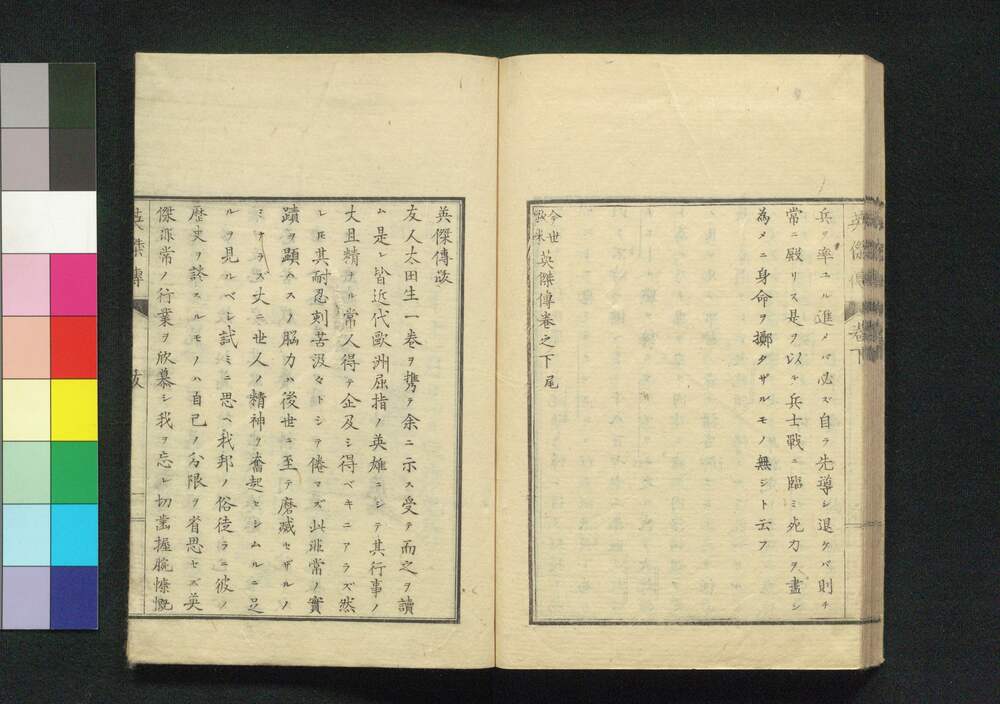 兵ヲ率ユル進メバ必ズ自ラ先導シ退ケバ則チ
常ニ殿リス是ヲ以テ兵士戰ニ臨ミ死力ヲ盡シ
為メニ身命ヲ擲タザルモノ無シト云フ
今世歐米英傑傳卷之下尾
英傑傳 卷下
英傑傳跋
友人太田生一卷ヲ携ヘ余ニ示ス受テ而之ヲ讀
ム是レ皆近代歐洲屈指ノ英雄ニシテ其行事ノ
大且精ナル常人得テ企及シ得ベキニアラズ然
レ𪜈其耐忍刻苦汲々トシテ倦マズ此非常ノ實
蹟ヲ顕ハスノ脳力ハ後世ニ至テ磨滅セザルノ
ミナラズ大ニ世人ノ精神ヲ奮起セシムルニ足
ルヲ見ルベシ試ミニ思ヘ我邦ノ俗徒ラニ彼ノ
歴史ヲ談スルモノハ自己ノ分限ヲ省思セズ英
傑非常ノ行業ヲ欣慕シ我ヲ忘レ切齒握腕慷慨
英傑傳 跋